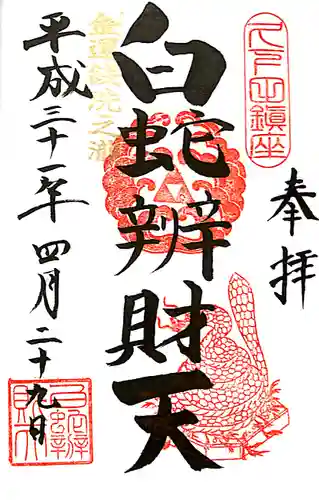 奉拝
鎮座
白蛇辨財天
金運銭洗之瀧
平成三十一年四月二十九日
白蛇辨
財天